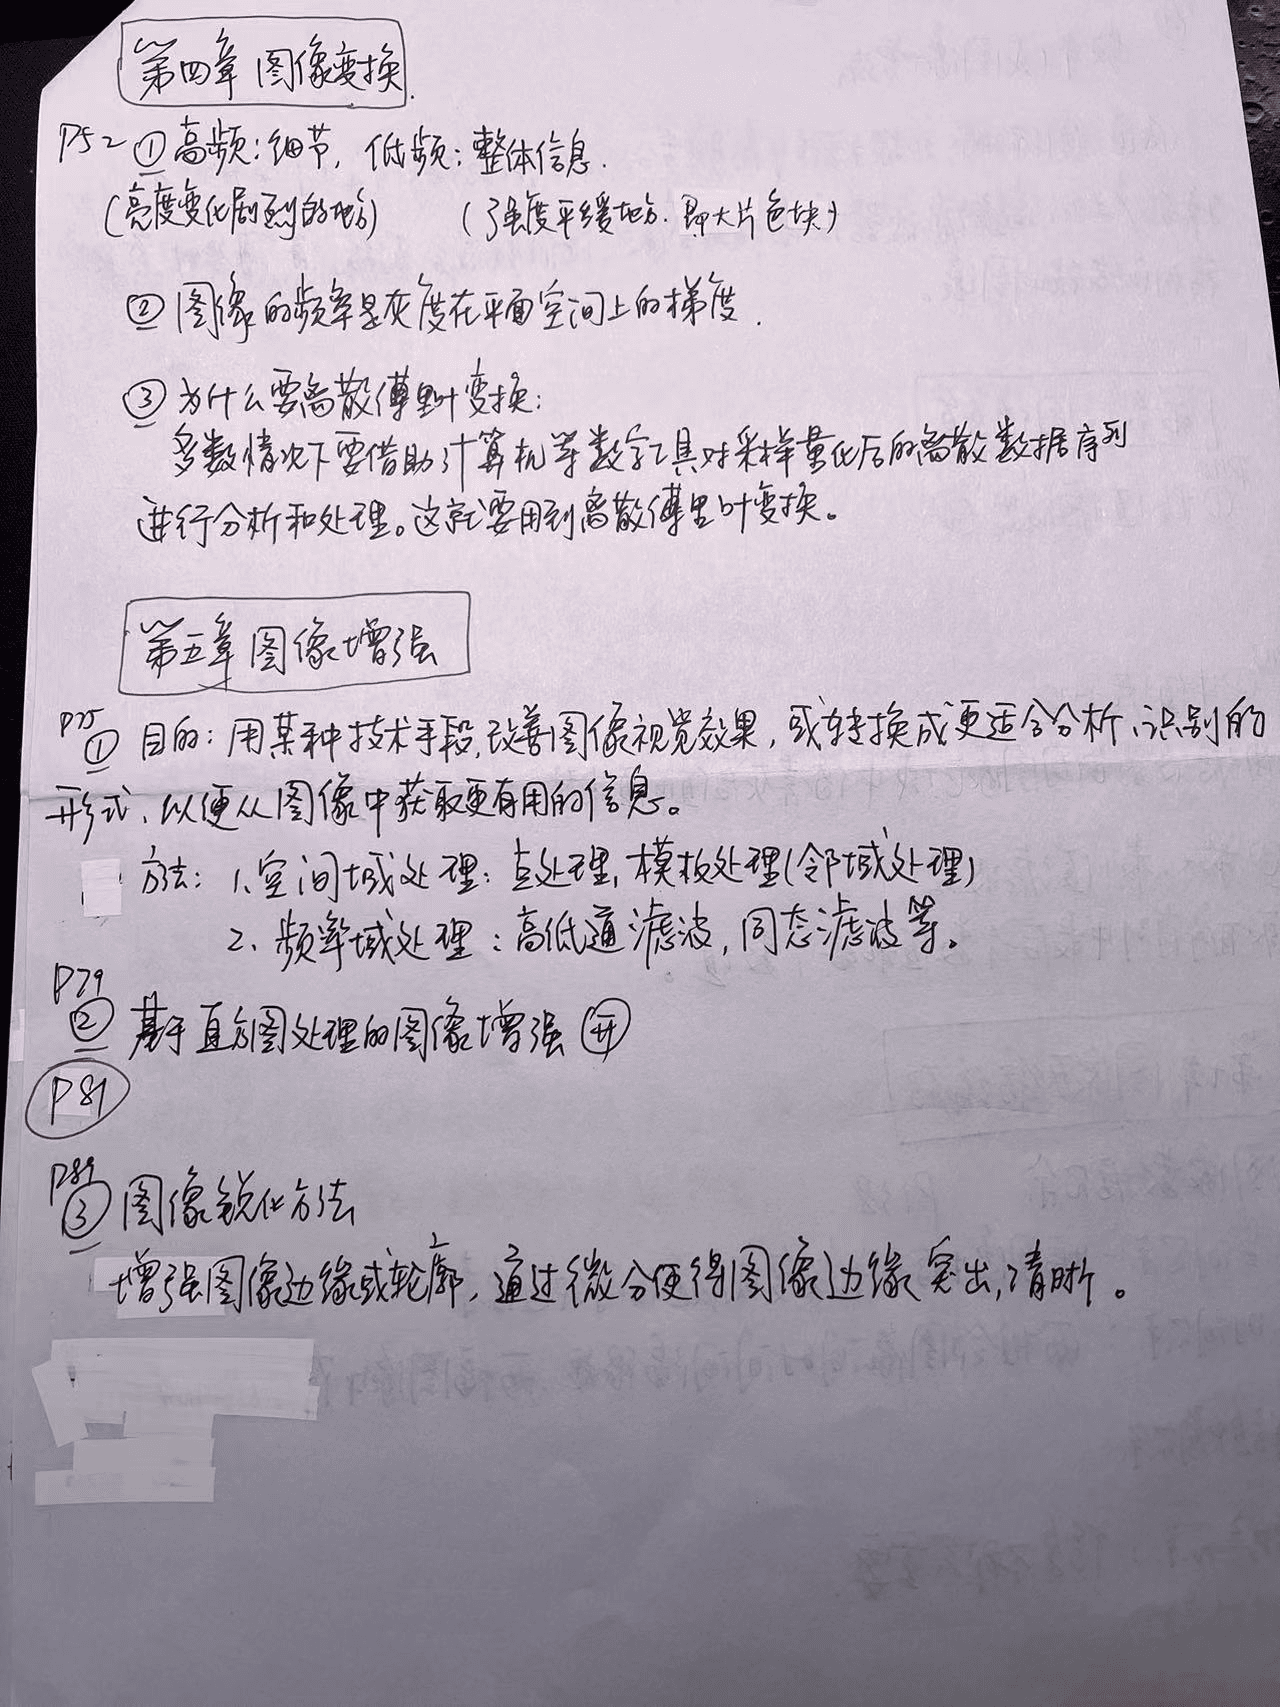 第四章 图像变换
P52 ① 高频：细节，低频：整体信息．
（亮度变化剧烈的地方） （强度平缓地方．即大片色块）
② 图像的频率是灰度在平面空间上的梯度．
③ 为什么要离散傅里叶变换：
多数情况下要借助计算机等数字工具对采样量化后的离散数据序列
进行分析和处理。这就要用到离散傅里叶变换。
第五章 图像增强
P75
① 目的：用某种技术手段，改善图像视觉效果，或转换成更适合分析、识别的
形式、以便从图像中获取更有用的信息。
方法：1、空间域处理：点处理，模板处理（邻域处理）
2、频率域处理：高低通滤波，同态滤波等。
P79
② 基于直方图处理的图像增强
P81
③ 图像锐化方法
增强图像边缘或轮廓，通过微分使得图像边缘突出，清晰。